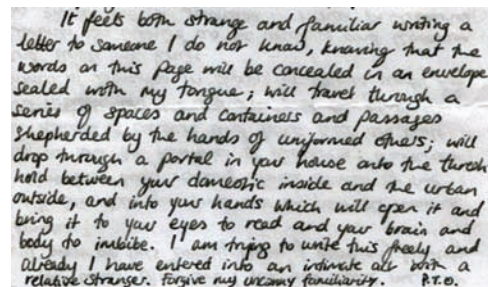 It feels both strange and familiar writing a
letter to someone I do not know, knowing that the
words on this page will be concealed in an envelope
sealed with my tongue; will travel through a
series of spaces and containers and passages
shepherded by the hands of uniformed others; will
drop through a portal in your house onto the thresh
hold between your domestic inside and the urban
outside, and into your hands which will open it and
bring it to your eyes to read and your brain and
body to imbibe. I am trying to write this freely and
already I have entered into an intimate act with a
relative stranger. Forgive my uncanny familiarity. P.T.O.